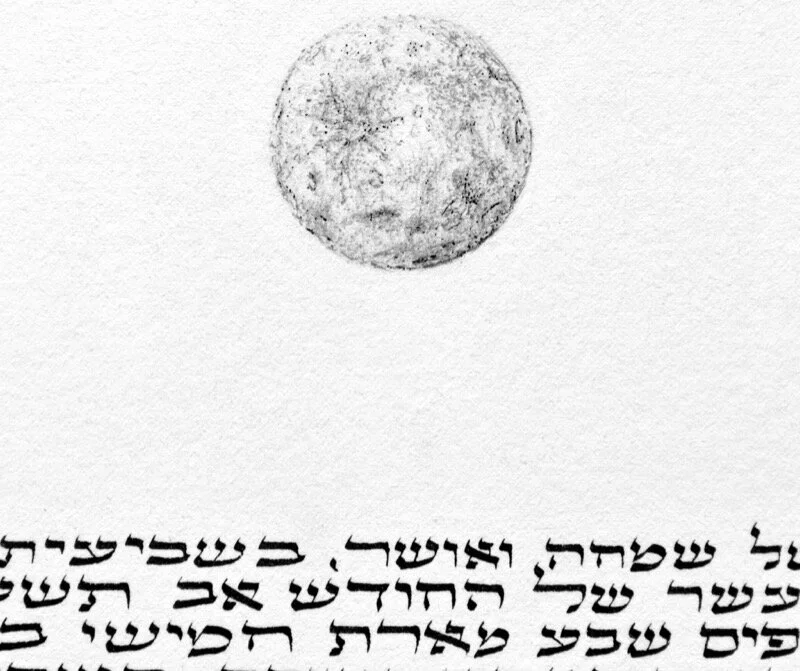 של שמחה ואושר, בשביעית
עשר של החודש אב
פים שבע מאות חמישי ב